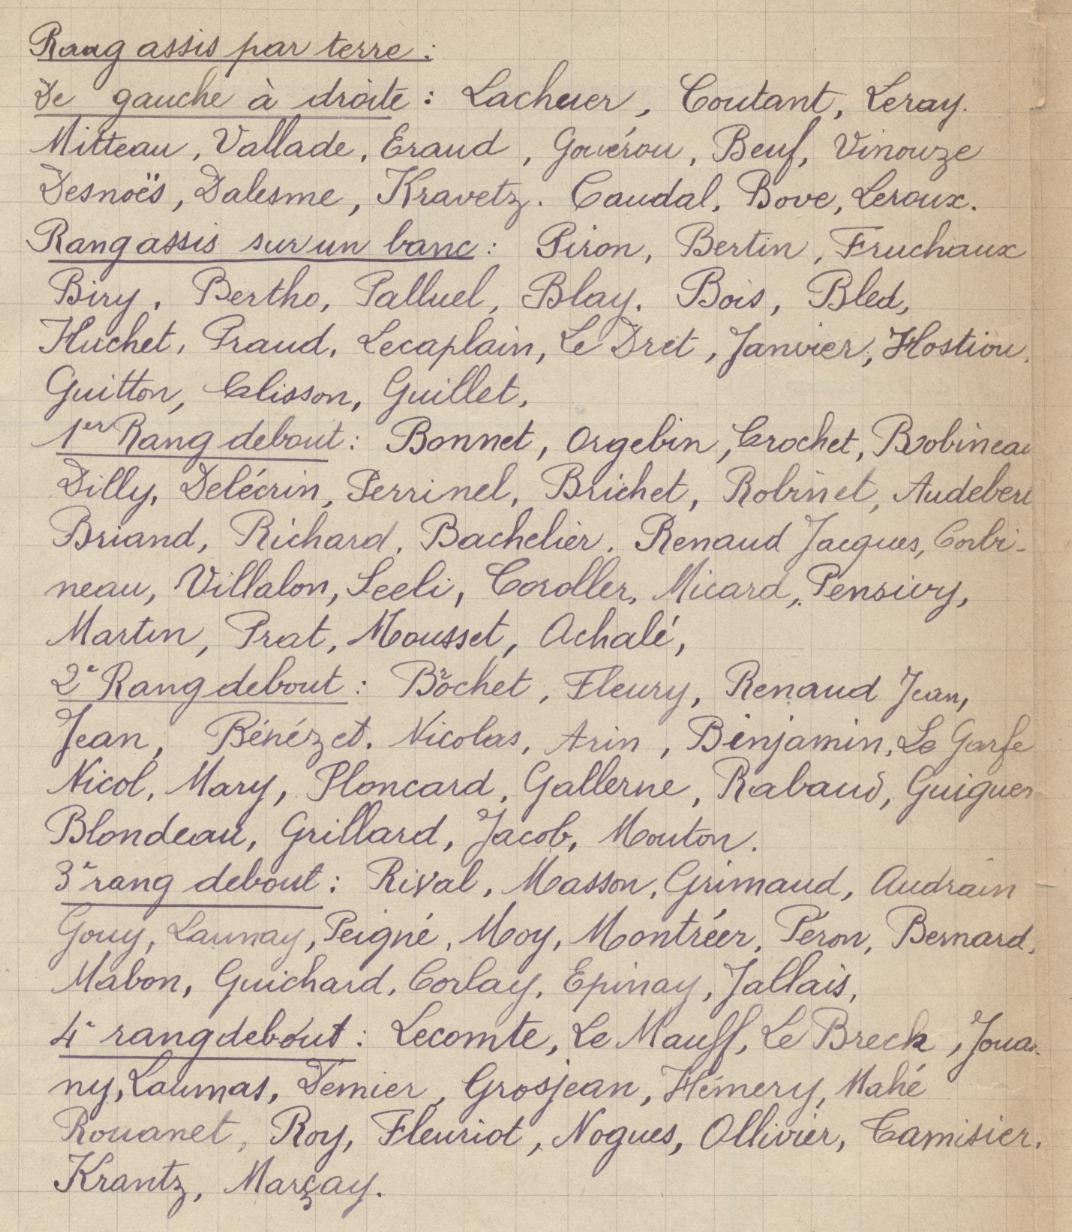 Rang assis par terre :
De gauche à droite : Lacheer, Coutant, Leray.
Mitteau, Vallade, Eraud, Gouérou, Beuf, Vinouze
Desnoës, Dalesme, Kravetz. Caudal, Bove, Leroux.
Rang assis sur un banc : Piron, Bertin, Fruchaux
Biry, Bertho, Palluel, Blay. Bois, Bled,
Huchet, Praud, Lecaplain, Le Dret, Janvier, Hostiou.
Guitton, Clisson, Guillet,
1er Rang debout : Bonnet, Orgebin, Crochet, Brobineau
Dilly, Delécrin, Perrinel, Brichet, Robinet, Audebert
Briand, Richard, Bachelier. Renaud Jacques, Corbi-
neau, Villalon, Seeli, Coroller, Micard, Pensivy,
Martin, Prat, Mousset, Achalé,
2e Rang debout : Bochet, Fleury, Renaud Jean,
Jean, Bénézet. Nicolas, Arin, Binjamin, Le Garfe
Nicol, Mary, Ploncard, Gallerne, Rabaud, Guigues
Blondeau, Grillard, Jacob, Mouton.
3e rang debout : Rival, Masson, Grimaud, Audrain
Gouy, Launay, Peigné, Moy, Montréer, Péron, Bernard,
Mabon, Guichard, Corlay, Epinay, Jallais,
4e rang debout : Lecomte, Le Mauff, Le Breck, Joua-
ny, Laumas, Demier, Grosjean, Hémery, Mahé
Rouanet, Roy, Fleuriot, Nogues, Ollivier, Camisier,
Krantz, Marçay.